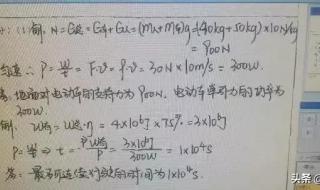 解: (1) N=G总=G车+G人=(m人+m车)g=(40kg+50kg)×10N/kg
=900N
P=W/t=F·v=f·v=30N×10m/s=300W.
答: 地面对电动车的支持力为900N, 电动车牵引力的功率为
300W.
W有=W总·η=4×10⁶J×75%=3×10⁶J
P=W/t⇒t=W有/P=3×10⁶J/300W=1×10⁴s
答: 最多可连续行驶的时间为1×10⁴s.
头条